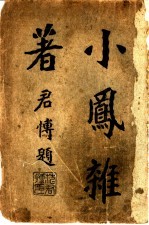 小鳳雜
著
君博題